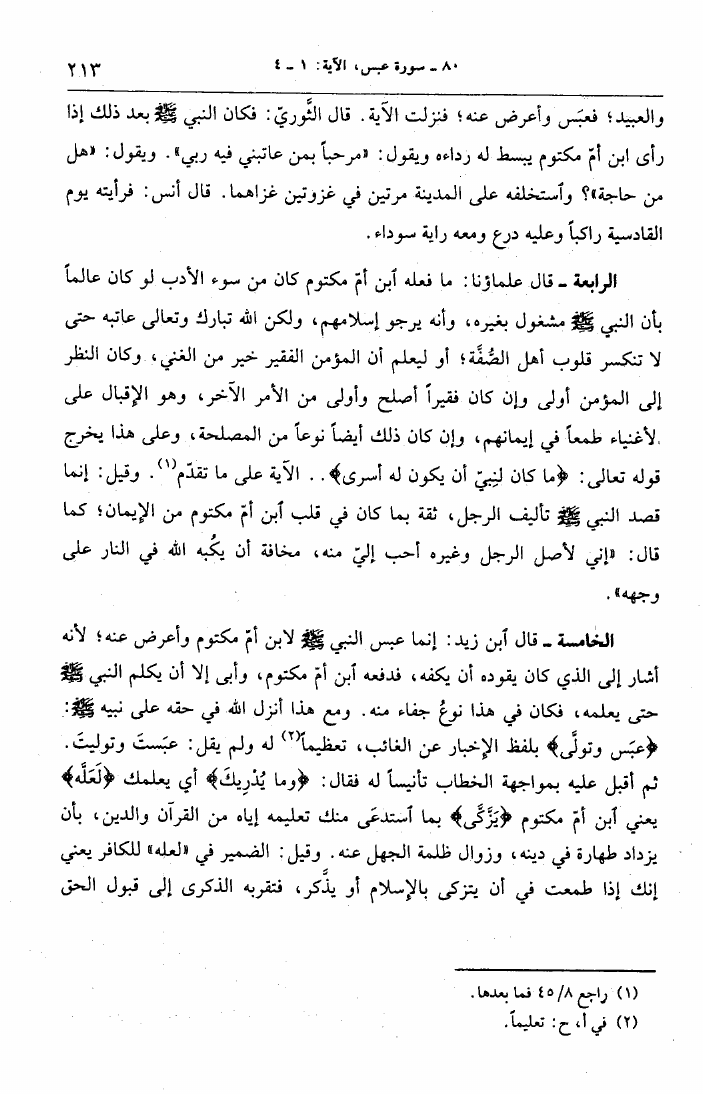 ٨٠ ـ سورة عبس، الآية: ١ ـ ٤ ٢١٣
والعبيد؛ فعبَس وأعرض عنه؛ فنزلت الآية. قال الثَّوريّ: فكان النبي ﷺ بعد ذلك إذا
رأى ابن أمّ مكتوم يبسط له رداءه ويقول: «مرحباً بمن عاتبني فيه ربي». ويقول: «هل
من حاجة»؟ وٱستخلفه على المدينة مرتين في غزوتين غزاهما. قال أنس: فرأيته يوم
القادسية راكباً وعليه درع ومعه راية سوداء.
الرابعة ـ قال علماؤنا: ما فعله ٱبن أمّ مكتوم كان من سوء الأدب لو كان عالماً
بأن النبي ﷺ مشغول بغيره، وأنه يرجو إسلامهم، ولكن الله تبارك وتعالى عاتبه حتى
لا تنكسر قلوب أهل الصُّفَّة؛ أو ليعلم أن المؤمن الفقير خير من الغني، وكان النظر
إلى المؤمن أولى وإن كان فقيراً أصلح وأولى من الأمر الآخر، وهو الإقبال على
لأغنياء طمعاً في إيمانهم، وإن كان ذلك أيضاً نوعاً من المصلحة، وعلى هذا يخرج
قوله تعالى: ﴿ما كان لنِبيّ أن يكون له أسرى﴾.. الآية على ما تقدّم(١). وقيل: إنما
قصد النبي ﷺ تأليف الرجل، ثقة بما كان في قلب ٱبن أمّ مكتوم من الإيمان؛ كما
قال: «إني لأصل الرجل وغيره أحب إليّ منه، مخافة أن يكُبه الله في النار على
وجهه».
الخامسة ـ قال ٱبن زيد: إنما عبس النبي ﷺ لابن أمّ مكتوم وأعرض عنه؛ لأنه
أشار إلى الذي كان يقوده أن يكفه، فدفعه ٱبن أمّ مكتوم، وأبى إلا أن يكلم النبي ﷺ
حتى يعلمه، فكان في هذا نوعُ جفاء منه. ومع هذا أنزل الله في حقه على نبيه ﷺ:
﴿عبَس وتولَّى﴾ بلفظ الإخبار عن الغائب، تعظيماً(٢) له ولم يقل: عبَستَ وتوليتَ.
ثم أقبل عليه بمواجهة الخطاب تأنيساً له فقال: ﴿وما يُدْرِيكَ﴾ أي يعلمك ﴿لَعَلَّه﴾
يعني ٱبن أمّ مكتوم ﴿يَزَّكَّى﴾ بما ٱستدعَى منك تعليمه إياه من القرآن والدين، بأن
يزداد طهارة في دينه، وزوال ظلمة الجهل عنه. وقيل: الضمير في «لعله» للكافر يعني
إنك إذا طمعت في أن يتزكى بالإسلام أو يذَّكر، فتقربه الذكرى إلى قبول الحق
(١) راجع ٤٥/٨ فما بعدها.
(٢) في أ، ح: تعليماً.